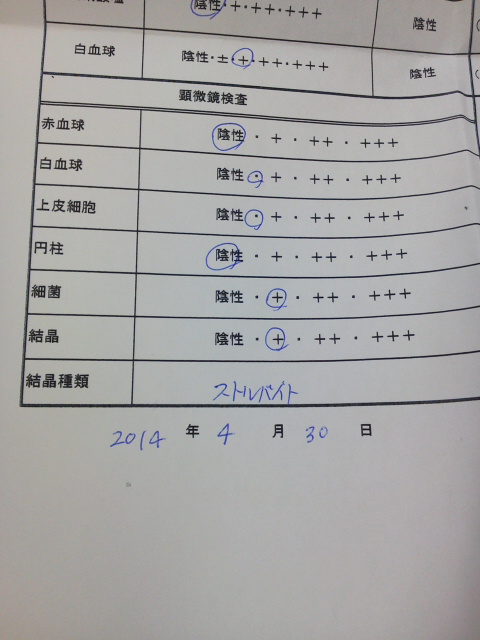 陰性・+・++・+++ 陰性
白血球 陰性・±・+・++・+++ 陰性
顕微鏡検査
赤血球 陰性 ・ + ・ ++ ・ +++
白血球 陰性 ・ + ・ ++ ・ +++
上皮細胞 陰性 ・ + ・ ++ ・ +++
円柱 陰性 ・ + ・ ++ ・ +++
細菌 陰性 ・ + ・ ++ ・ +++
結晶 陰性 ・ + ・ ++ ・ +++
結晶種類 ストルバイト
2014 年 4 月 30 日